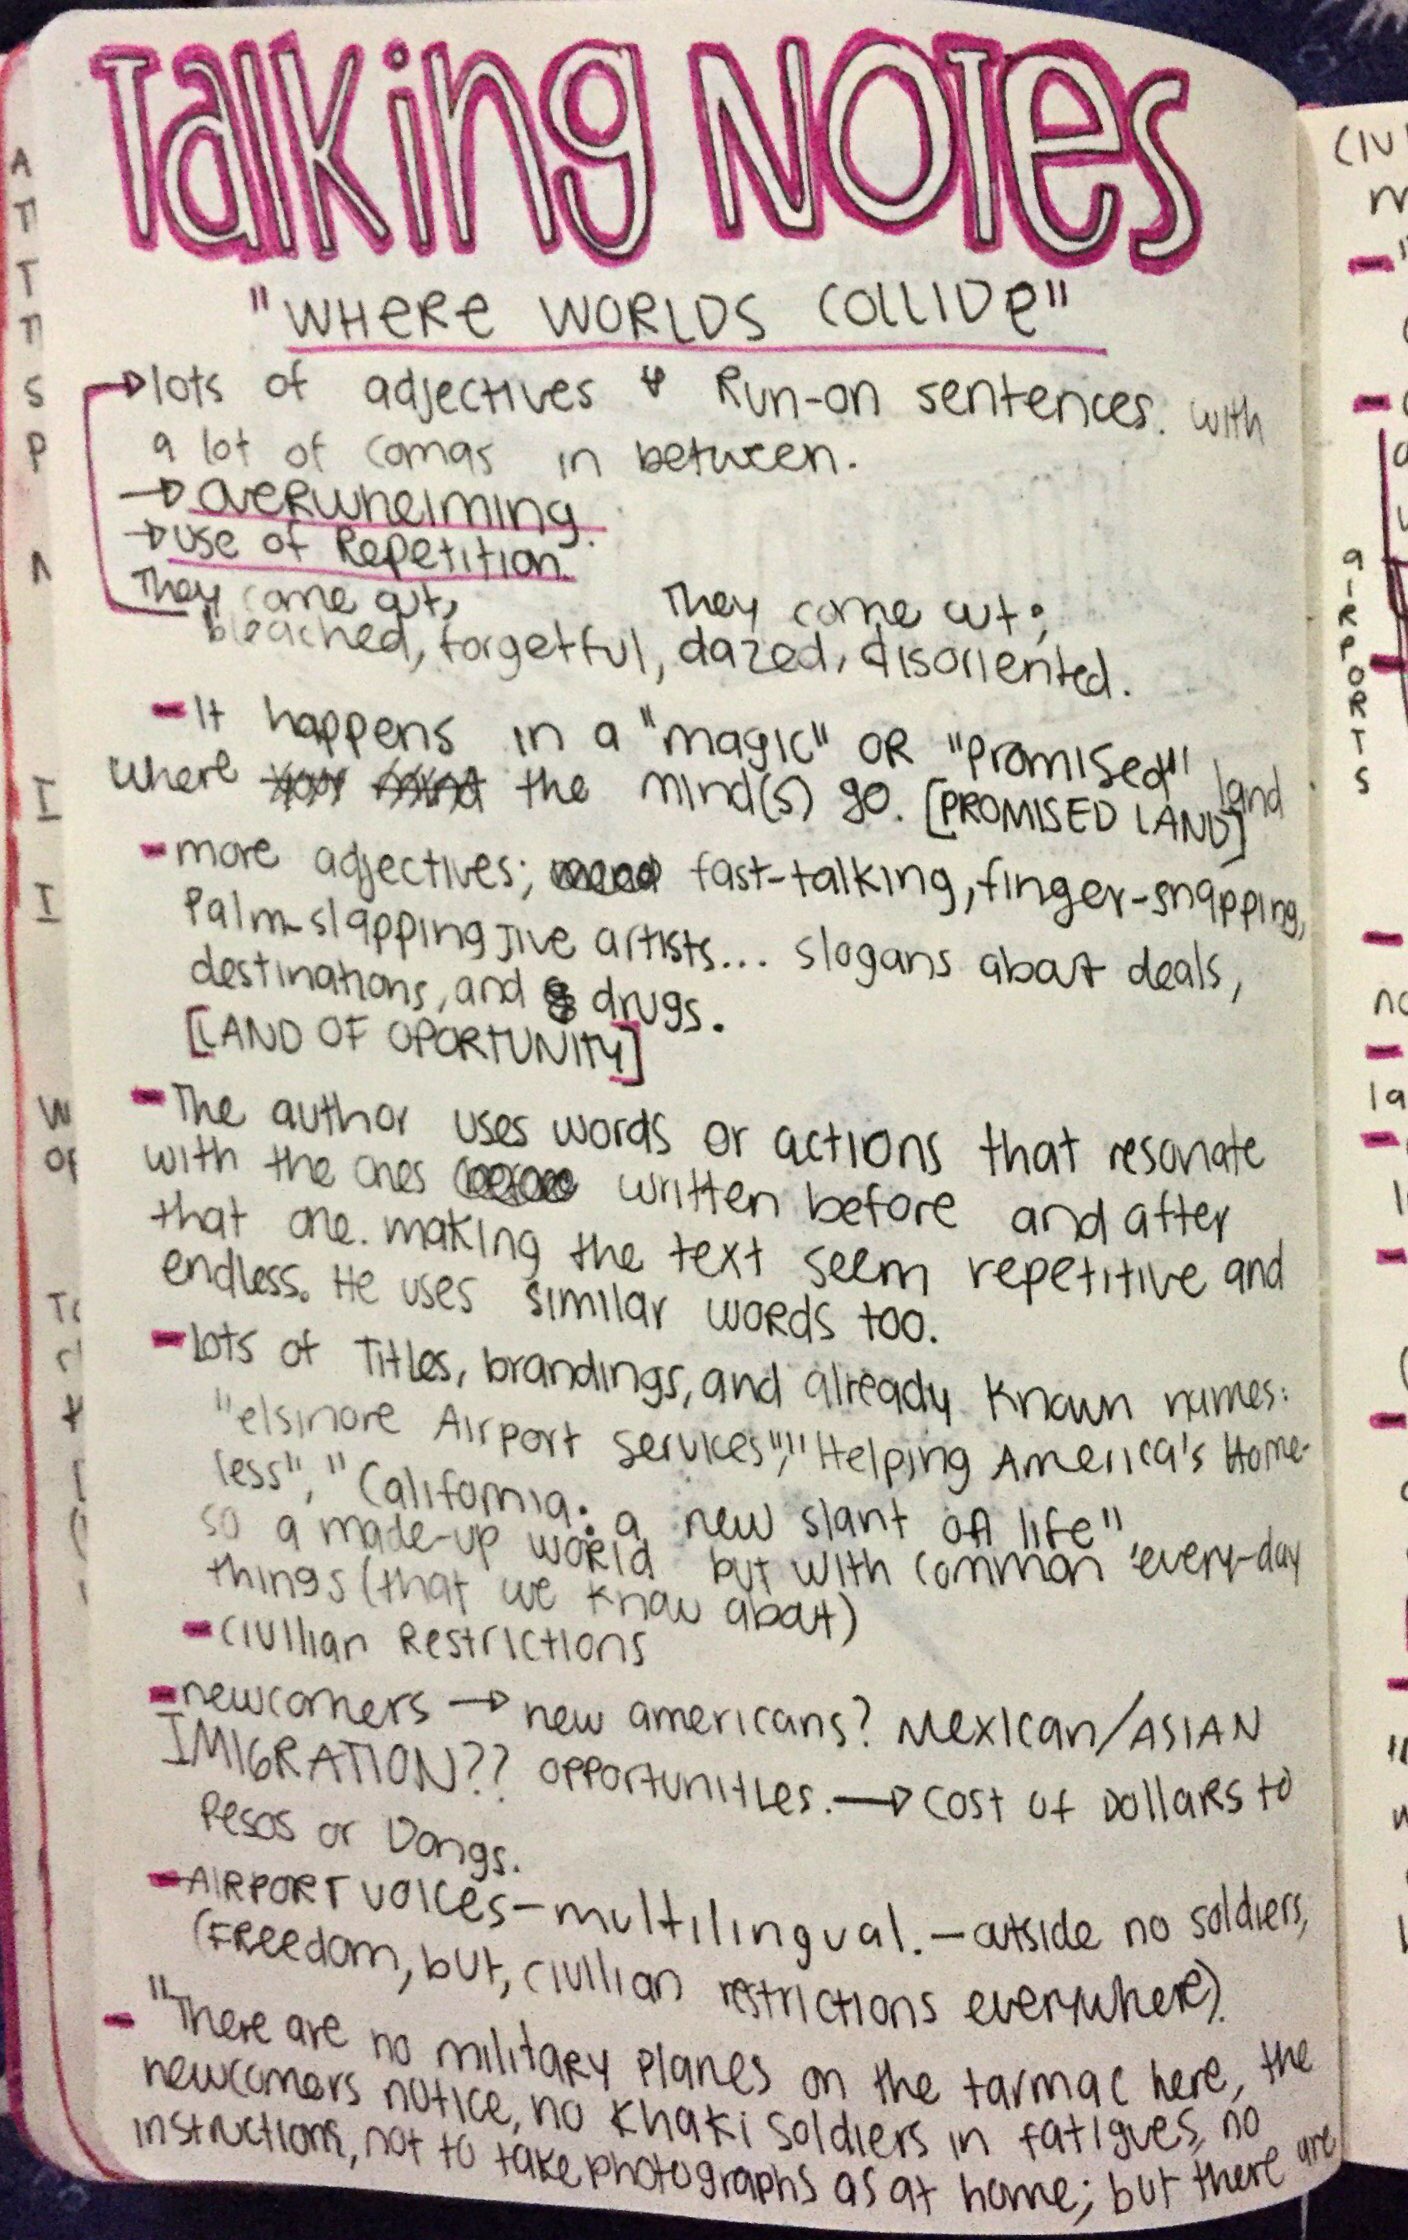 Talking Notes
"WHERE WORLDS COLLIDE"
lots of adjectives & Run-on sentences. with
a lot of comas in between.
→ overwhelming.
→ use of Repetition.
They come out, They come out;
bleached, forgetful, dazed, disoriented.
- It happens in a "magic" OR "Promised" land
where your mind the mind(s) go. [PROMISED LAND]
- more adjectives; fast-talking, finger-snapping,
Palm-slapping Jive artists... slogans about deals,
destinations, and drugs.
[LAND OF OPORTUNITY]
- The author uses words or actions that resonate
with the ones before written before and after
that one. making the text seem repetitive and
endless. He uses similar words too.
- lots of Titles, brandings, and already known names:
"elsinore Airport services", "Helping America's Home-
less", "California: a new slant on life",
so a made-up world but with common every-day
things (that we know about)
- civilian Restrictions
- newcomers → new americans? Mexican/ASIAN
IMIGRATION?? opportunities. → cost of Dollars to
Pesos or Dongs.
- AIRPORT voices - multilingual. - outside no soldiers,
(Freedom, but, civilian restrictions everywhere).
- "There are no military planes on the tarmac here, the
newcomers notice, no khaki soldiers in fatigues, no
instructions, not to take photographs as at home; but there are
A
T
T
S
P
I
I
W
OF
AIRPORTS